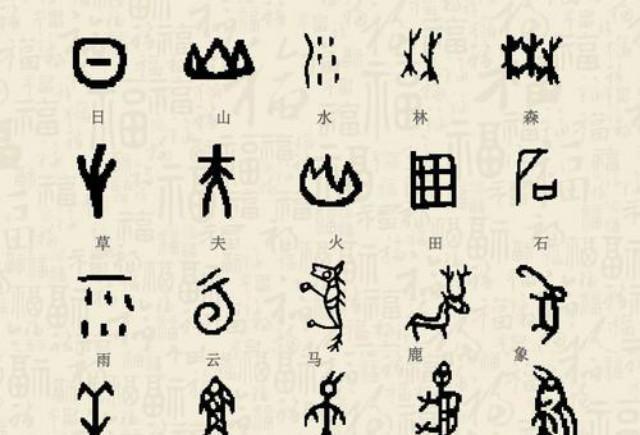 日 山 水 林 森
草 夫 火 田 石
雨 云 马 鹿 象